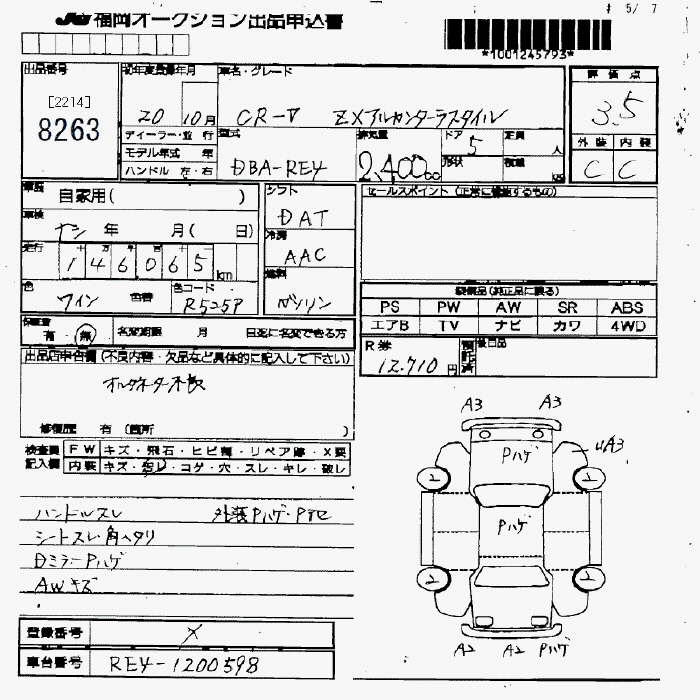 JU福岡オークション出品申込書
5/ 7
*1001245793*
出品番号
[2214]
8263
初年度登録年月
20 10月
車名・グレード
CR-V ZXアルカンターラスタイル
評価点
3.5
外装 内装
C C
ディーラー・並行
モデル年式 年
ハンドル 左・右
型式
DBA-RE4
排気量
2,400cc
ドア
5
形状
定員
人
積載
車歴
自家用( )
車検
ナシ 年 月( 日)
走行
十 万 千 百 十
146065km
色
ワイン 色替
色コード
R525P
シフト
DAT
冷房
AAC
燃料
ガソリン
セールスポイント (正常に機能するもの)
装備品(純正品に限る)
PS PW AW SR ABS
エアB TV ナビ カワ 4WD
R券
12,710円
預託済
後日品
保証書
有 無
名変期限 月 日迄に名変できる方
出品店申告欄 (不良内容・欠品など具体的に記入して下さい)
オルタネーター不良
修復歴 有 (箇所 )
検査員記入欄
FW キズ・飛石・ヒビ・リペア跡・X要
内装 キズ・汚レ・コゲ・穴・スレ・キレ・破レ
ハンドルスレ 外装Pハゲ・Pボセ
シートスレ・角ヘタリ
DミラーPハゲ
AWキズ
登録番号 X
車台番号 RE4-1200598
A3 A3
Pハゲ
UA3
2 2
Pハゲ
2 2
A2 A2 Pハゲ